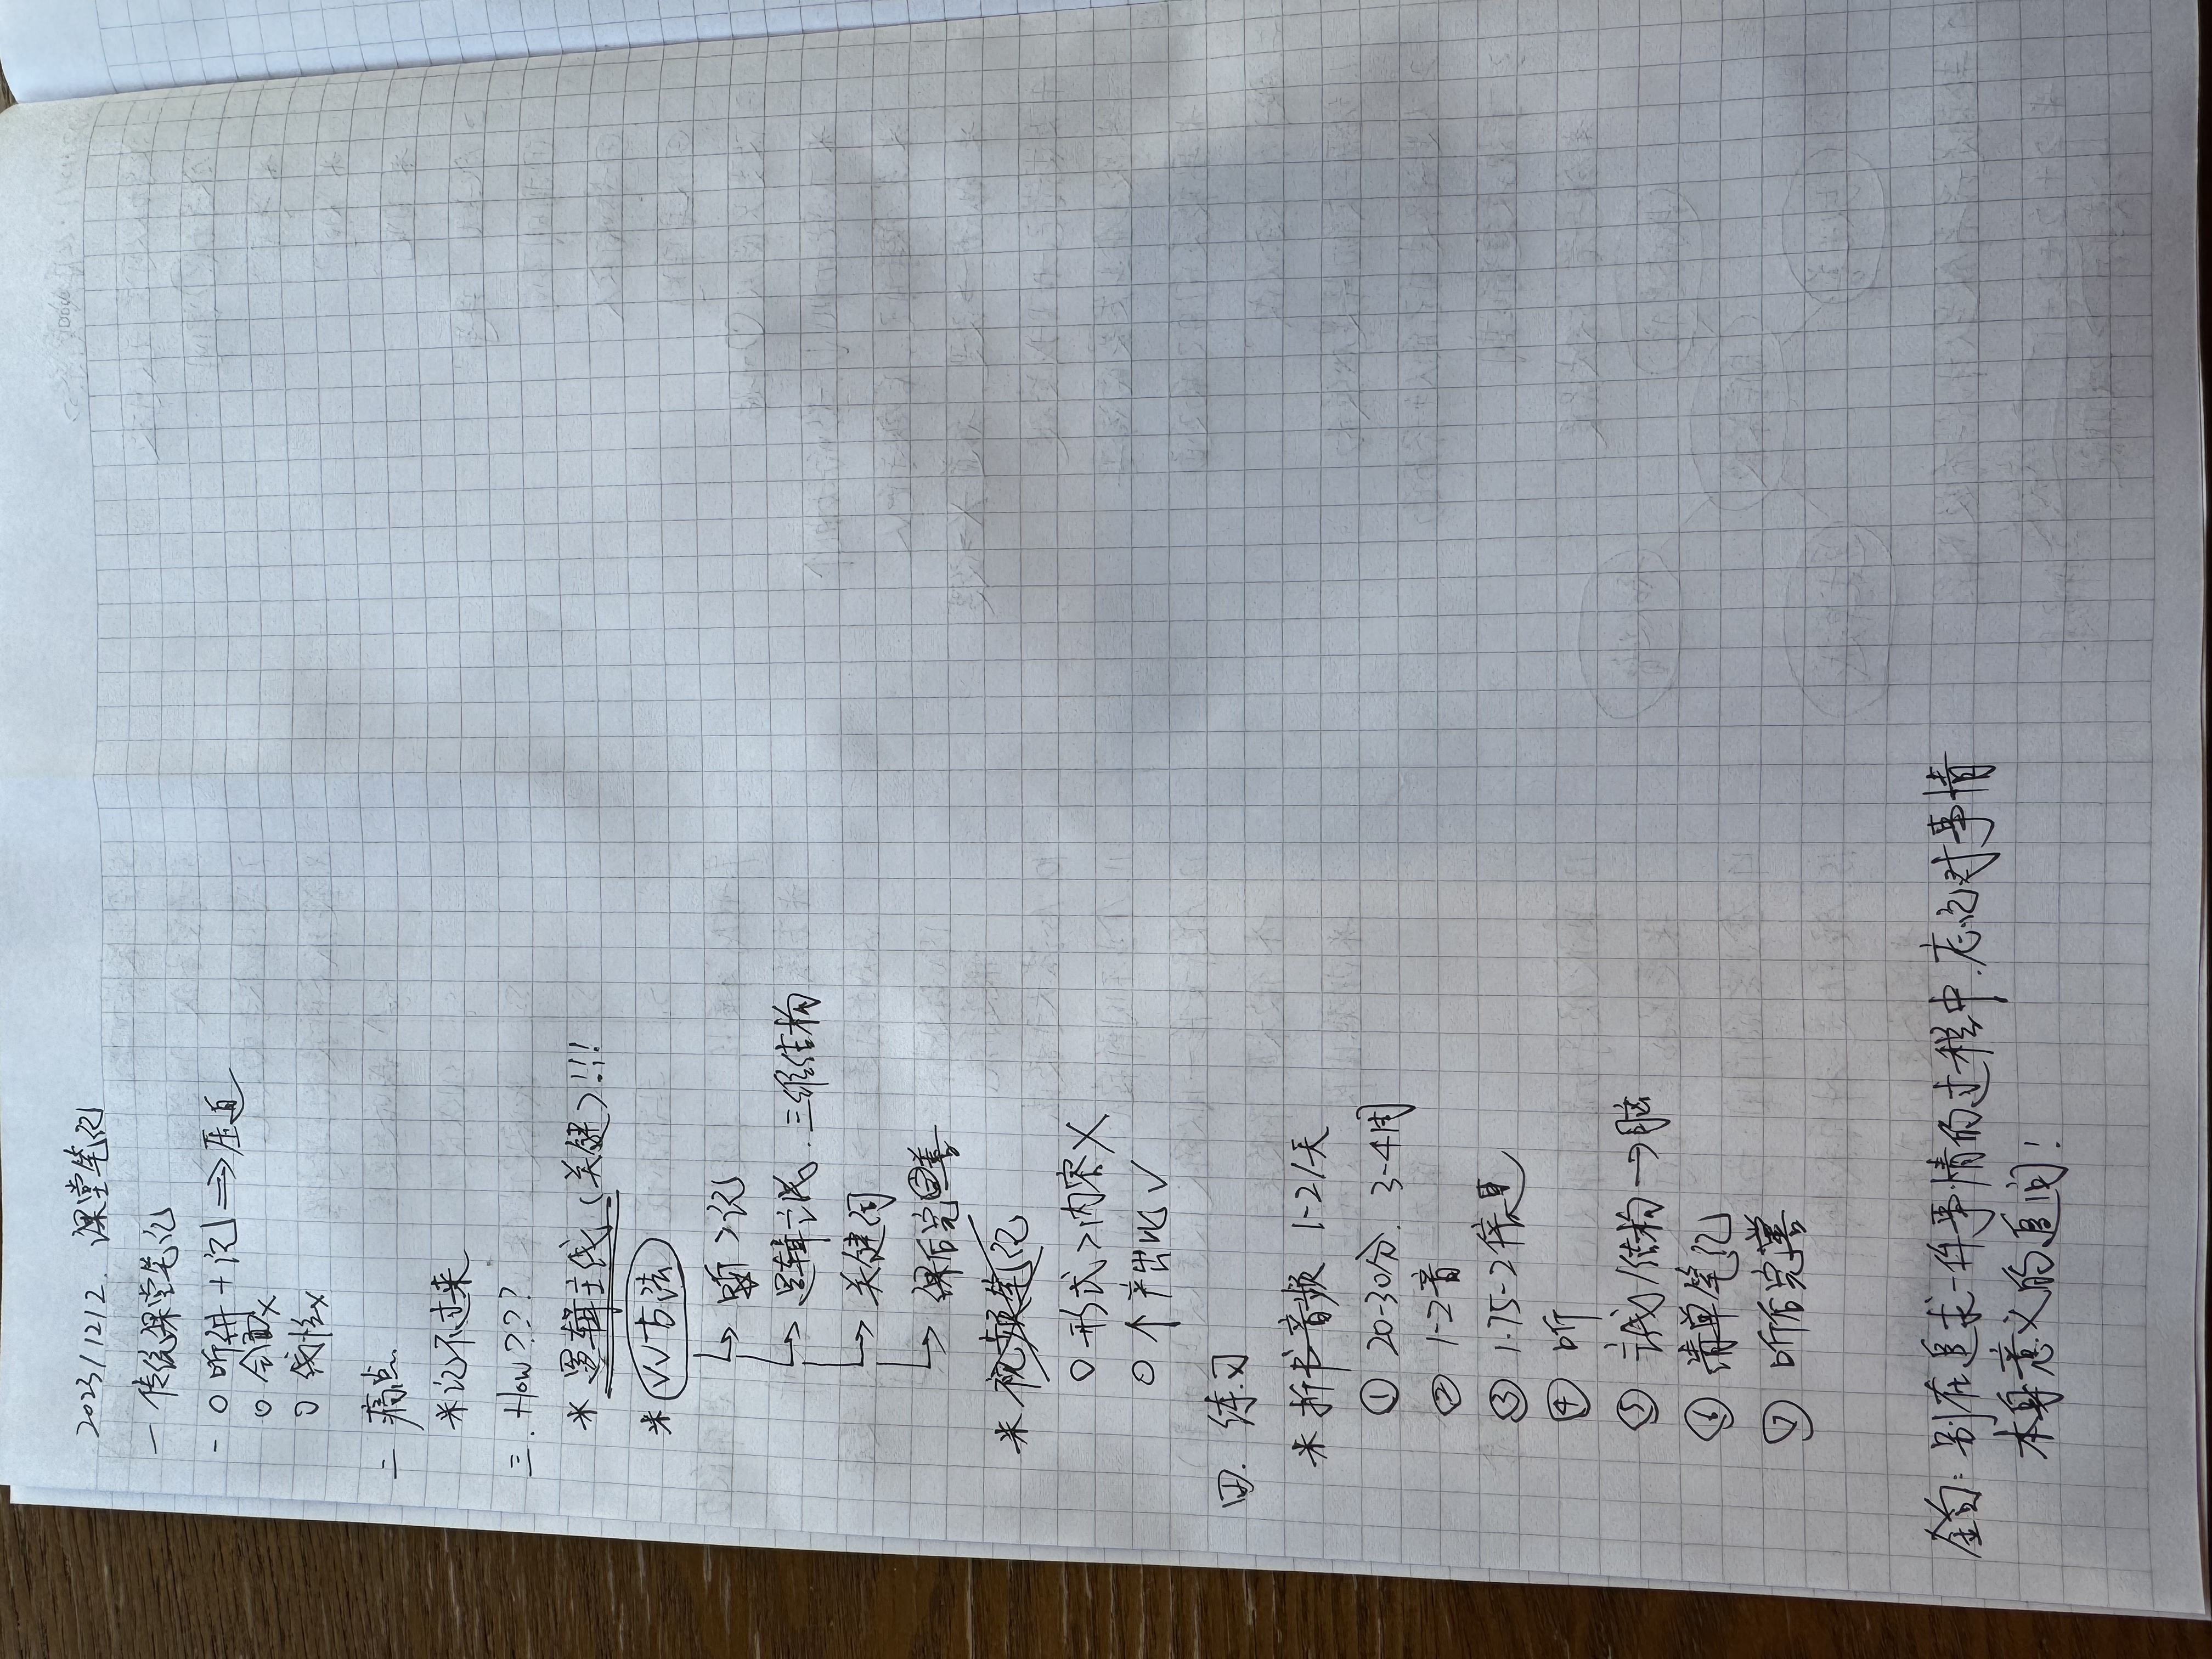 2023/12/2. 课堂笔记
一 传统课堂笔记
- ○ 听讲+记 ⇒ 压迫
○ 会議×
○ 线性×
二 痛点.
*记不过来
三. How???
* 逻辑主线(关键)!!!
* VV方法
↳ 听>记
↳ 逻辑识. 三维结构
↳ 关键词
↳ 课后完善
* 视频笔记
○ 形式>内容 ×
○ 个产出比 ✓
四. 练习
* 拆书音频 1-2/天
① 20-30分. 3-4周
② 1-2音
③ 1.75-2倍速
④ 听
⑤ 计划/结构→脑
⑥ 清单笔记
⑦ 听后完善
金句: 别在追求一件事情的过程中.忘记对事情
本身意义的追问!